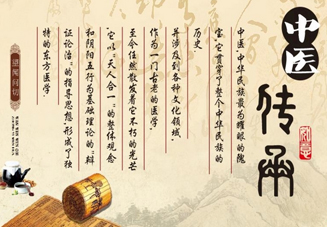 中医
传承
中医,中华民族最为耀眼的瑰
宝,它贯穿了整个中华民族的
历史,
并涉及到各种文化领域,
作为一门古老的医学,
至今任然散发着它不朽的光芒
。它以“天人合一”的整体观念
和阴阳五行为基础理论的“辩
证论治”的指导思想,形成了独
特的东方医学.
望闻问切